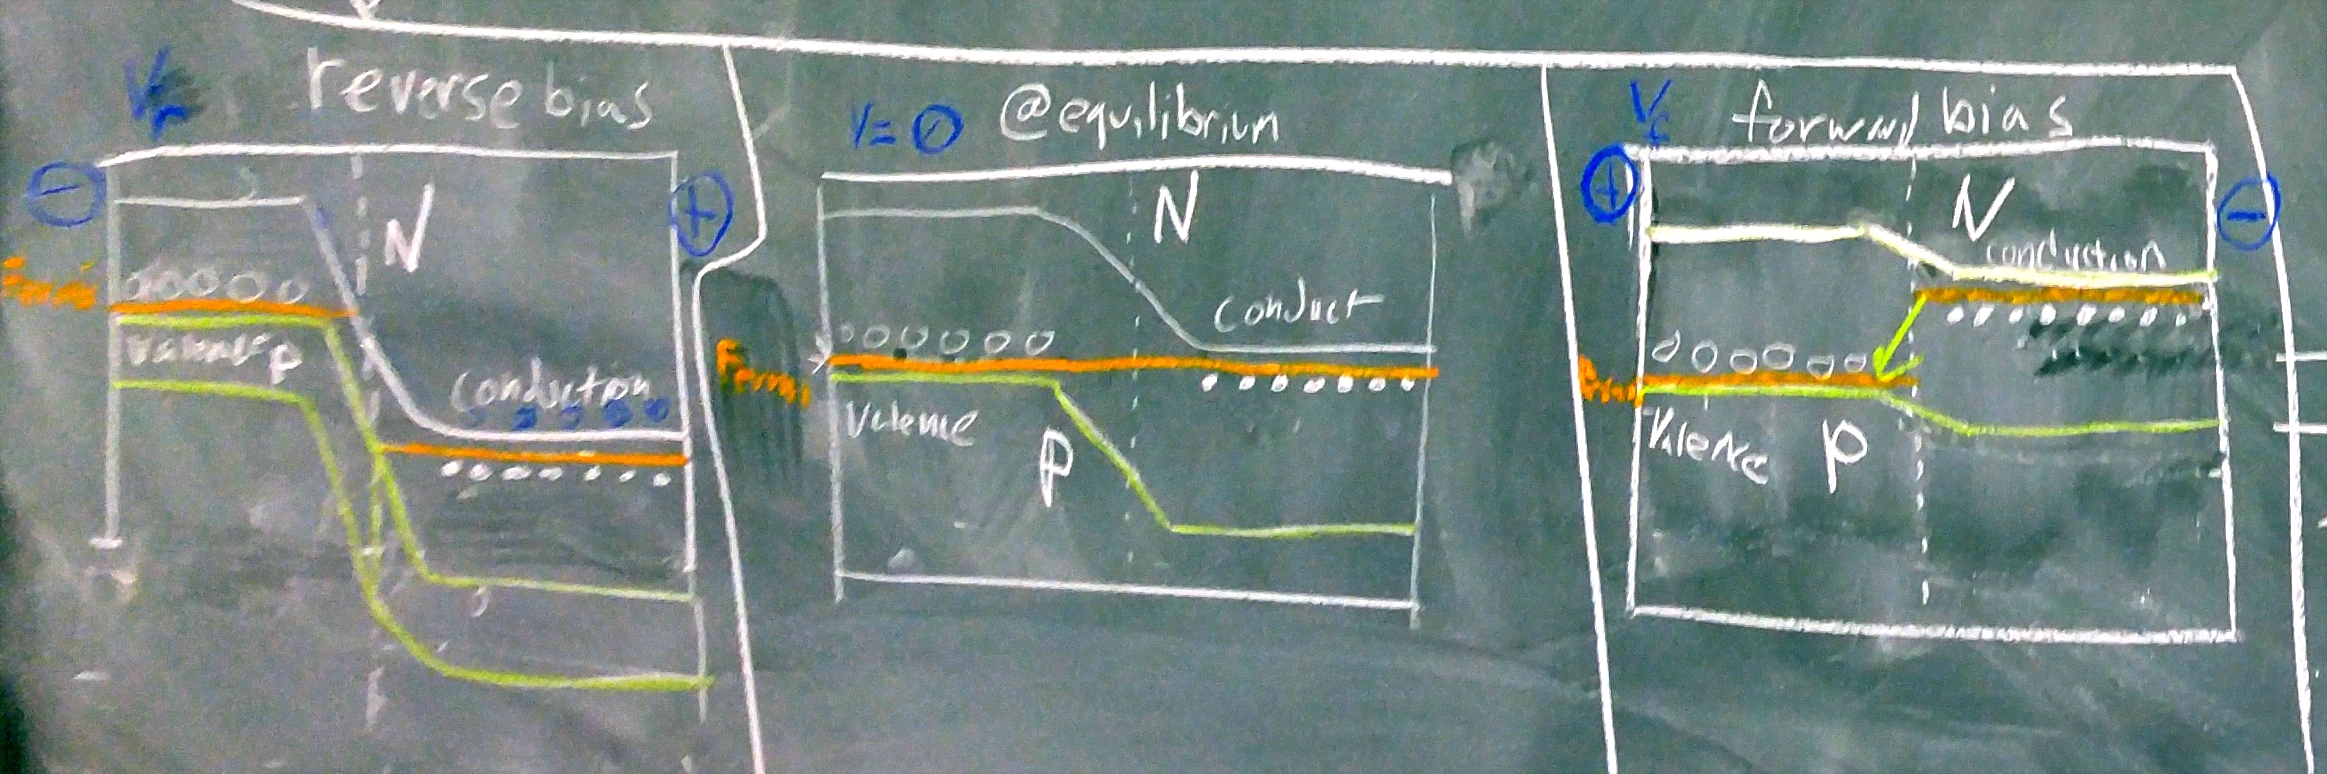 Vr reverse bias
− +
N
Fermi
Valence P
conduction
V=0 @equilibrium
N
conduct
Fermi
Valence
P
Vf forward bias
+ −
N
conduction
Valence P